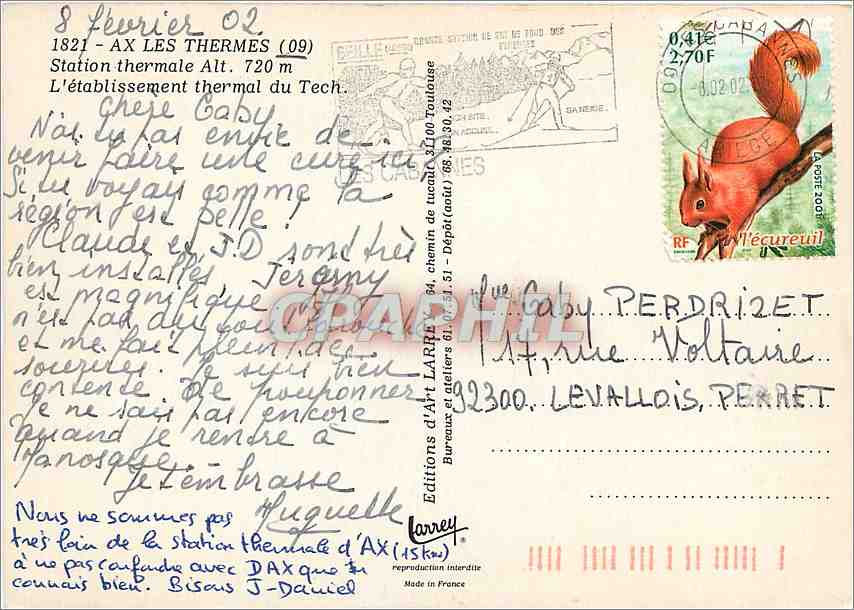 8 février 02
1821 - AX LES THERMES (09)
Station thermale Alt. 720 m
L'établissement thermal du Tech.
Chère Gaby
N'as tu pas envie de
venir faire une cure ici ?
Si tu voyais comme la
région est belle !
Claude et J.D sont très
bien installés. Jeremy
est magnifique. Il
n'est pas du tout farouche
et me fait plein de
sourires. Je suis bien
contente de pouponner
Je ne sais pas encore
quand je rentre à
Manosque.
Je t'embrasse
Huguette
Nous ne sommes pas
très loin de la station thermale d'AX (15 km)
à ne pas confondre avec DAX que tu
connais bien. Bisous J-Daniel
Editions d'Art LARREY - 64, chemin de tucaut, 31100 Toulouse
Bureaux et ateliers 61.07.51.51 - Dépôt (août) 68.48.30.42
Larrey ®
reproduction interdite
Made in France
BEILLE GRANDE STATION DE SKI DE FOND DES
PYRENEES
SON SITE..
SON ACCUEIL..
SA NEIGE..
LES CABANNES
09 LES CABANNES
-8.02.02
ARIEGE
0,41€
2,70F
LA POSTE 2001
RF l'écureuil
CPARPHIL
Gaby PERDRIZET
17, rue Voltaire
92300. LEVALLOIS, PERRET